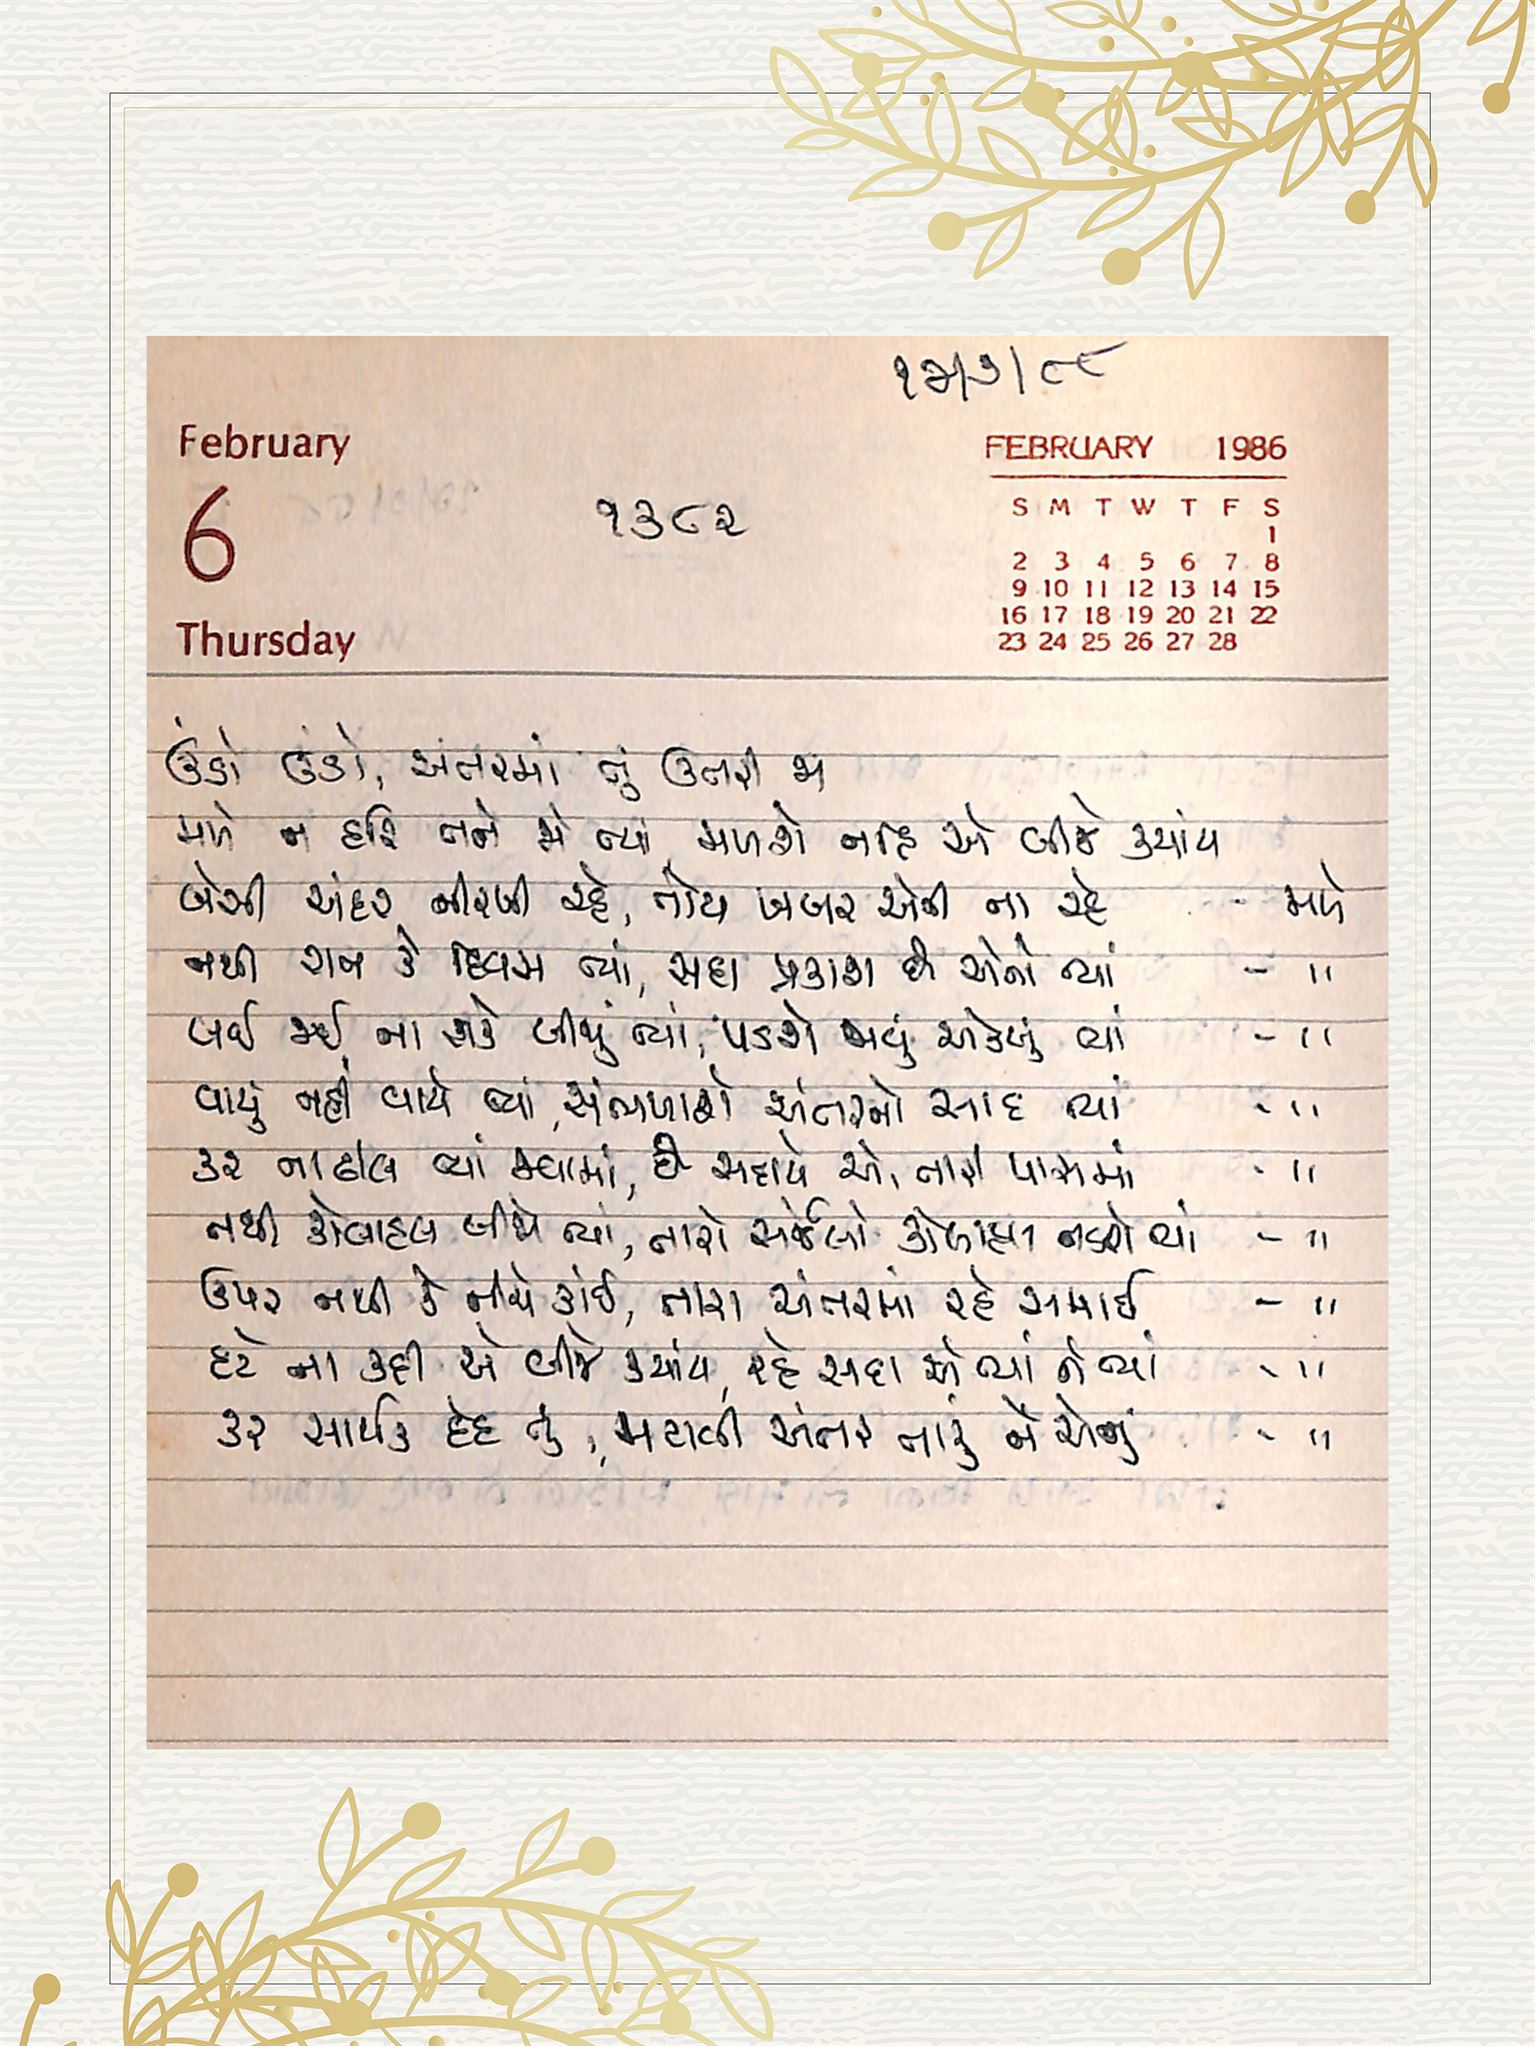 ૧૭/૭/૮૮
February
6
Thursday
૧૩૮૨
FEBRUARY 1986
S M T W T F S
1
2 3 4 5 6 7 8
9 10 11 12 13 14 15
16 17 18 19 20 21 22
23 24 25 26 27 28
ઉંડો ઉંડો, અંતરમાં તું ઉતરી જા
મળે ન હરિ તને જો ત્યાં, મળશે નહિ એ બીજે ક્યાંય
બેસી અંદર નીરખી રહે, તોય ખબર એની ના રહે - મળે
નથી રાત કે દિવસ ત્યાં, સદા પ્રકાશ છે એનો ત્યાં - "
લઈ જઈ ના શકે બીજું ત્યાં, પડશે જવું એકલું ત્યાં - "
વાયુ નહીં વાયે ત્યાં, સંભળાશે અંતરનો સાદ ત્યાં - "
કર ના ઢીલ ત્યાં જવામાં, છે સદાયે એ, તારી પાસમાં - "
નથી કોલાહલ બીજો ત્યાં, તારો સર્જેલો કોલાહલ નડશે ત્યાં - "
ઉપર નથી કે નીચે કાંઈ, તારા અંતરમાં રહે સમાઈ - "
હટે ના કદી એ બીજે ક્યાંય, રહે સદા એ ત્યાં ને ત્યાં - "
કર સાર્થક દેહ તું, મટાવી અંતર તારું ને એનું - "